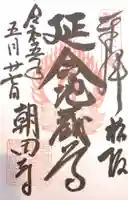 奉拝 松阪
延命地蔵尊
朝田寺
令和五年
五月廿一日